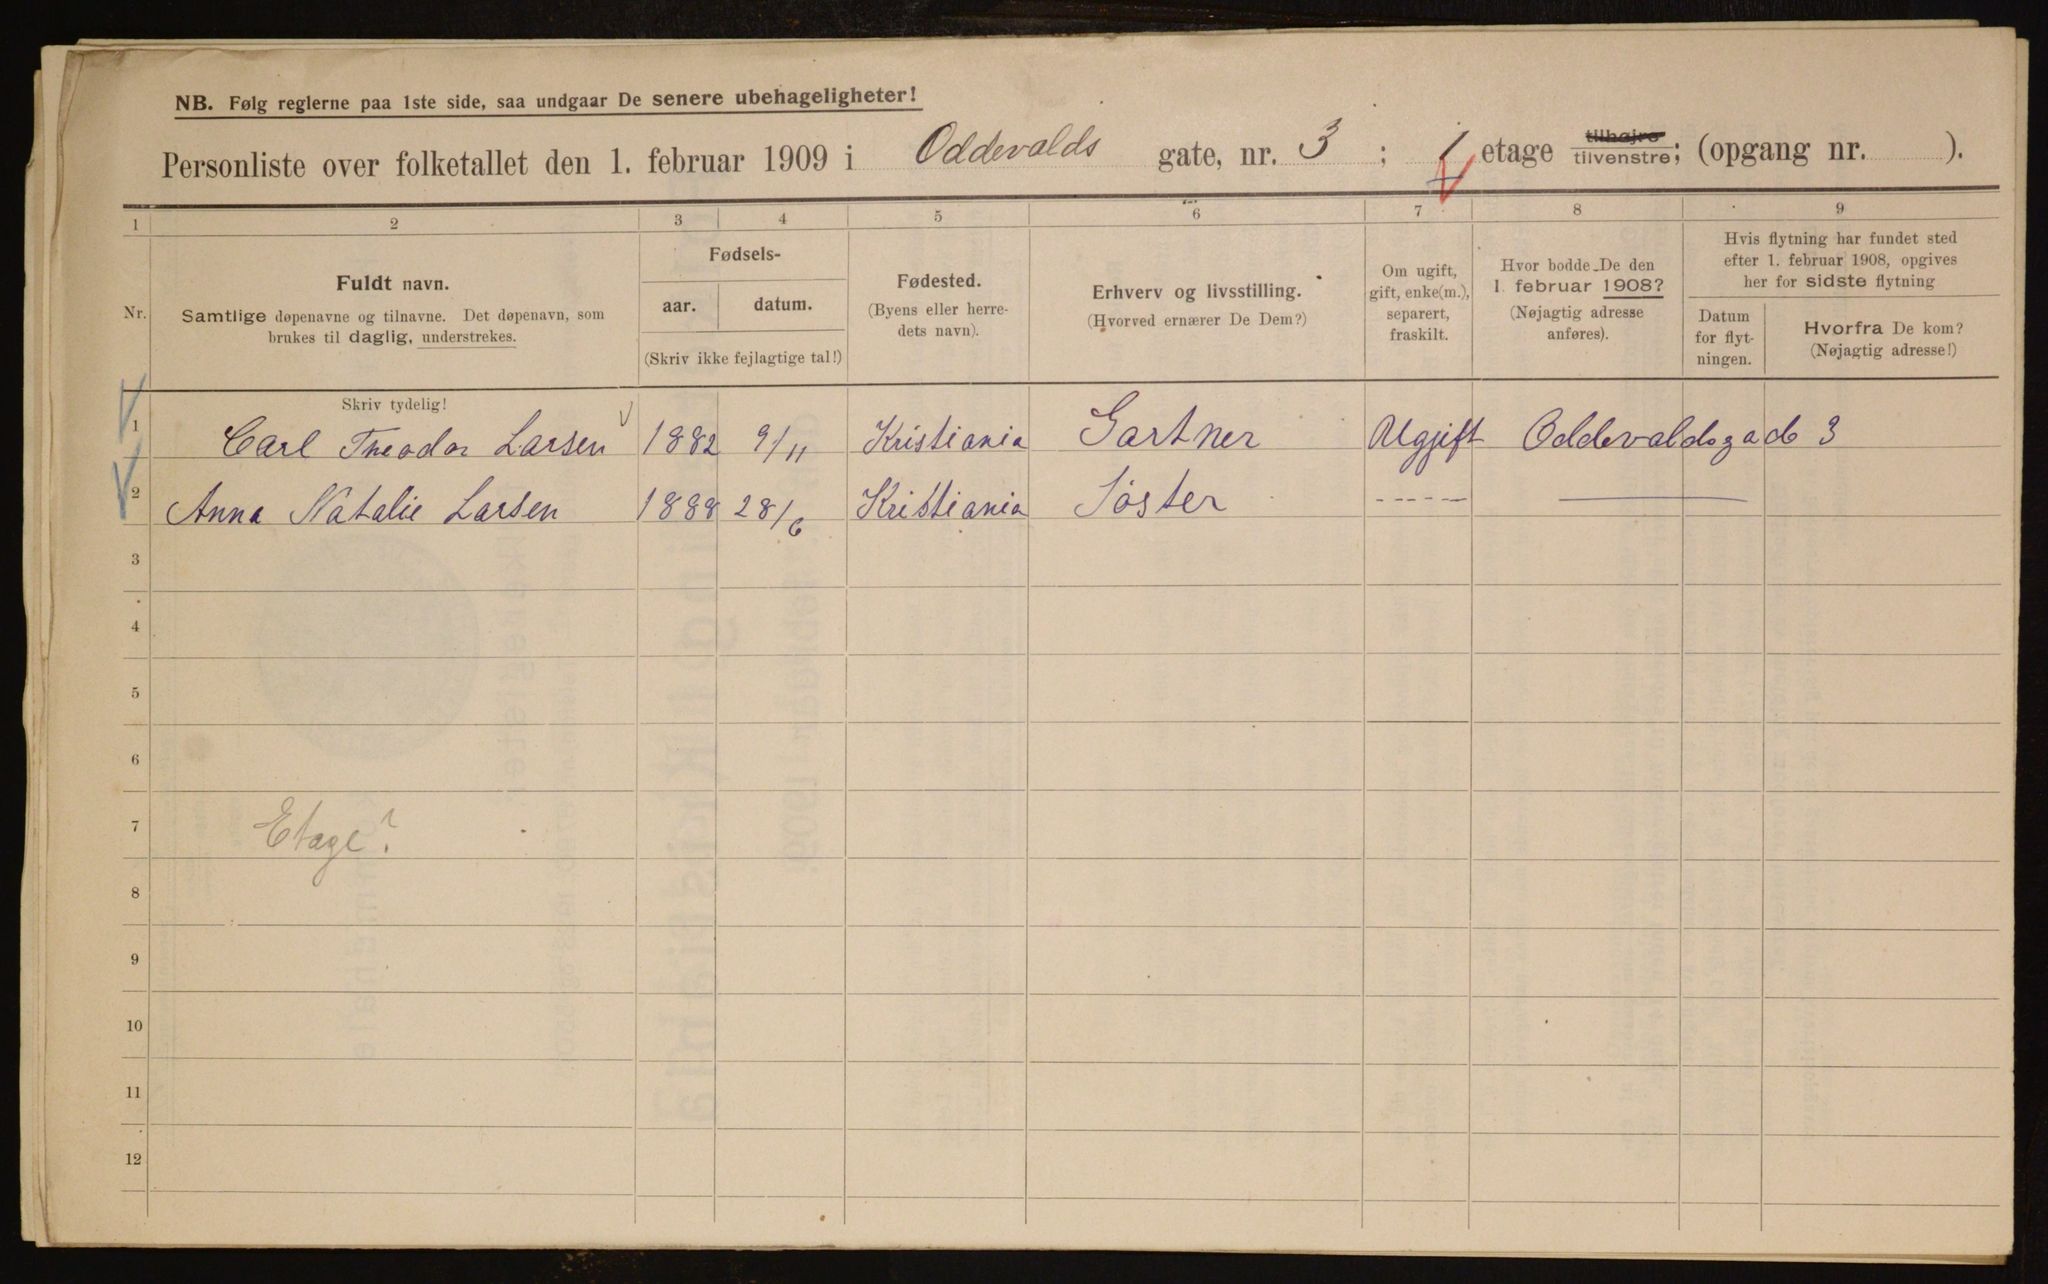 NB. Følg reglerne paa 1ste side, saa undgaar De senere ubehageligheter!
Personliste over folketallet den 1. februar 1909 i Oddevalds gate, nr. 3 ; 1 etage tilhøjre tilvenstre; (opgang nr. ).
1 2 3 4 5 6 7 8 9
Nr.
Fuldt navn.
Samtlige døpenavne og tilnavne. Det døpenavn, som
brukes til daglig, understrekes.
Skriv tydelig!
Fødsels-
aar. datum.
(Skriv ikke fejlagtige tal!)
Fødested.
(Byens eller herre-
dets navn).
Erhverv og livsstilling.
(Hvorved ernærer De Dem?)
Om ugift,
gift, enke(m.),
separert,
fraskilt.
Hvor bodde De den
1. februar 1908?
(Nøjagtig adresse
anføres).
Hvis flytning har fundet sted
efter 1. februar 1908, opgives
her for sidste flytning
Datum
for flyt-
ningen.
Hvorfra De kom?
(Nøjagtig adresse!)
1 Carl Theodor Larsen 1882 9/11 Kristiania Gartner Ugjift Oddevaldsgade 3
2 Anna Natalie Larsen 1888 28/6 Kristiania Söster
3
4
5
6
7 Etage?
8
9
10
11
12